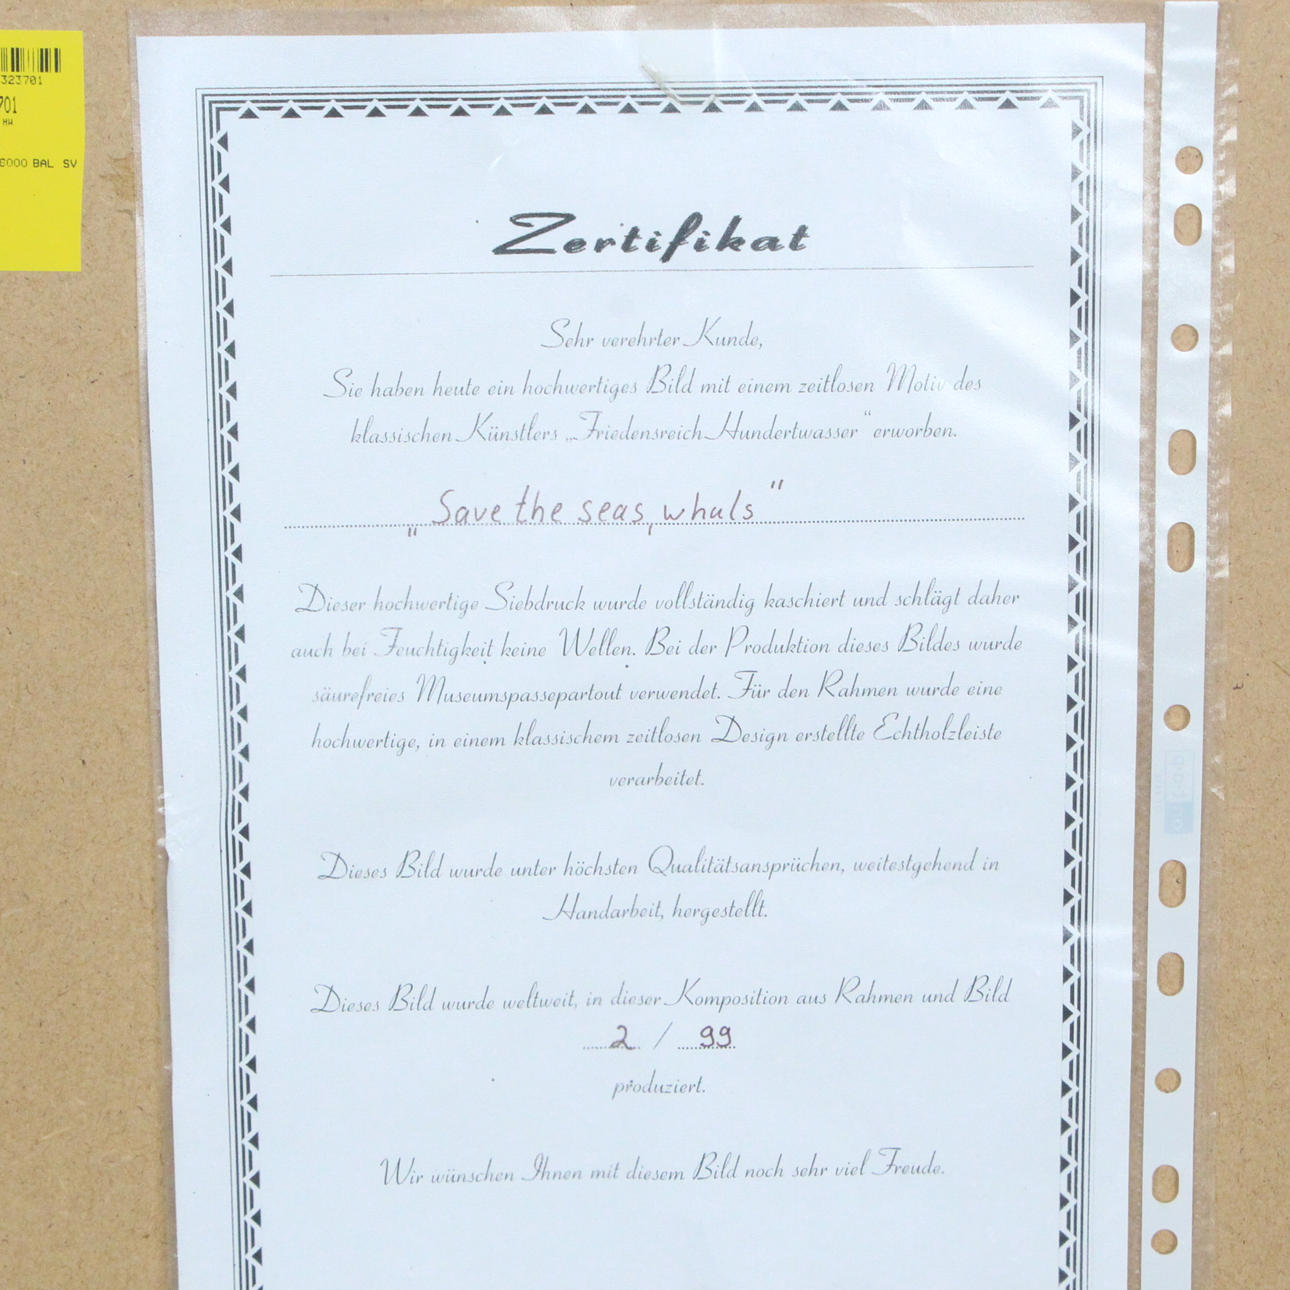 323701
701
HW
6000 BAL SV
Zertifikat
Sehr verehrter Kunde,
Sie haben heute ein hochwertiges Bild mit einem zeitlosen Motiv des
klassischen Künstlers „Friedensreich Hundertwasser“ erworben.
„Save the seas, whals"
Dieser hochwertige Siebdruck wurde vollständig kaschiert und schlägt daher
auch bei Feuchtigkeit keine Wellen. Bei der Produktion dieses Bildes wurde
säurefreies Museumspassepartout verwendet. Für den Rahmen wurde eine
hochwertige, in einem klassischem zeitlosen Design erstellte Echtholzleiste
verarbeitet.
Dieses Bild wurde unter höchsten Qualitätsansprüchen, weitestgehend in
Handarbeit, hergestellt.
Dieses Bild wurde weltweit, in dieser Komposition aus Rahmen und Bild
2 / 99
produziert.
Wir wünschen Ihnen mit diesem Bild noch sehr viel Freude.